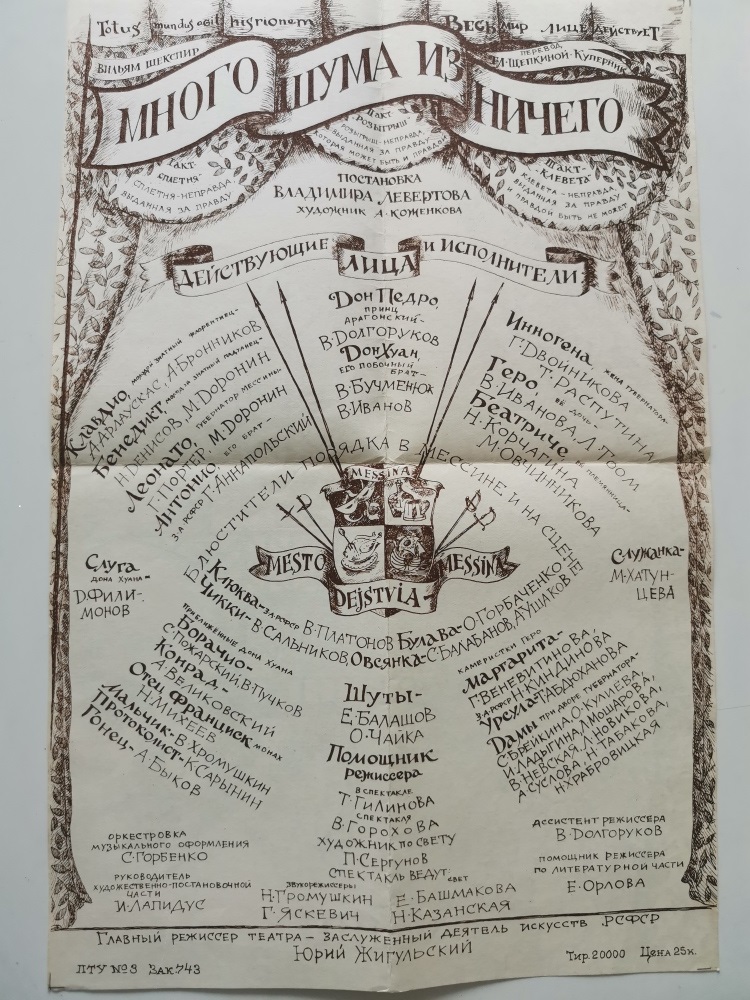 Totus mundus agit histrionem
Весь мир лицедействует
Вильям Шекспир
Перевод
Т.Л. Щепкиной-Куперник
МНОГО ШУМА ИЗ НИЧЕГО
I акт-
сплетня-
сплетня-неправда,
выданная за правду
II акт
розыгрыш-
розыгрыш-неправда,
выданная за правду,
которая может быть и правдой
III акт-
клевета-
клевета-неправда,
выданная за правду
и правдой быть не может
постановка
Владимира Левертова
художник А.Коженкова
Действующие лица и исполнители
Клавдио, молодой знатный флорентиец-
А.Арлаускас, А.Бронников
Бенедикт, молодой знатный падуанец-
Н.Денисов, М.Доронин
Леонато, губернатор Мессины-
Г.Портер, М.Доронин
Антонио, его брат-
з.а РСФСР Г.Аннапольский
Дон Педро,
принц
арагонский-
В.Долгоруков
Дон Хуан,
его побочный
брат-
В.Бучменюк
В.Иванов
Инногена, жена губернатора-
Г.Двойникова
Т.Распутина
Геро, её дочь-
В.Иванова, Л.Тоом
Беатриче, её племянница-
Н.Корчагина
М.Овчинникова
Блюстители порядка в Мессине и на сцене
MESSINA
MESTO DEJSTVIA- MESSINA
Слуга
дона Хуана-
Д.Фили-
монов
Служанка-
М.Хатун-
цева
Клюква-з.а.РСФСР В.Платонов Булава-О.Горбаченко
Чикки-В.Сальников, Овсянка-С.Балабанов, А.Ушаков
приближенные дона Хуана
Борачио-
С.Пожарский, В.Пучков
Конрад-
А.Великовский
Отец Франциск, монах
Н.Михеев
Мальчик-В.Хромушкин
Протоколист-К.Сарынин
Гонец-А.Быков
Шуты-
Е.Балашов
О.Чайка
Помощник
режиссера
в спектакле
Т.Гилинова
спектакля
В.Горохова
художник по свету
П.Сергунов
спектакль ведут:
камеристки Геро
Маргарита-
Г.Веневитинова,
з.а РСФСР Н.Киндинова
Урсула-Т.Абдюханова
Дамы при дворе губернатора-
С.Брейкина, О.Кулиева,
И.Ладыгина, Л.Мошарова,
В.Невская, Л.Новикова,
А.Суслова, Н.Табакова,
Н.Храбровицкая
оркестровка
музыкального оформления
С.Горбенко
руководитель
художественно-постановочной
части
И.Лапидус
звукорежиссеры
Н.Громушкин
Г.Яскевич
свет
Е.Башмакова
Н.Казанская
ассистент режиссера
В.Долгоруков
помощник режиссера
по литературной части
Е.Орлова
Главный режиссер театра- заслуженный деятель искусств РСФСР
Юрий Жигульский
ПТУ №8 Зак.743
Тир.20000 Цена 25к.